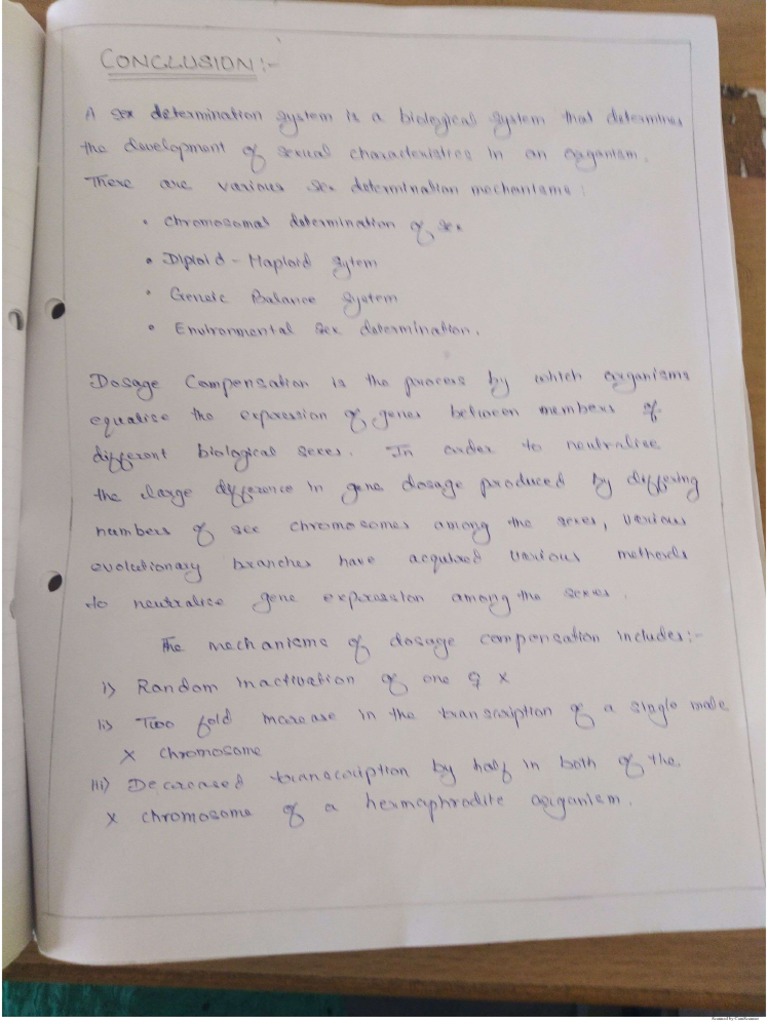 CONCLUSION:-
A sex determination system is a biological system that determines
the development of sexual characteristics in an organism.
There are various sex determination mechanisms:
• Chromosomal determination of sex
• Diploid - Haploid sytem
• Genetic Balance system
• Environmental sex determination.
Dosage Compensation is the process by which organisms
equalise the expression of genes between members of
different biological sexes. In order to neutralise
the large difference in gene dosage produced by differing
numbers of sex chromosomes among the sexes, various
evolutionary branches have acquired various methods
to neutralise gene expression among the sexes.
The mechanisms of dosage compensation includes:-
i) Random inactivation of one ♀ X
ii) Two fold increase in the transcription of a single male
X chromosome
iii) Decreased transcription by half in both of the
X chromosome of a hermaphrodite organism.
Scanned by CamScanner